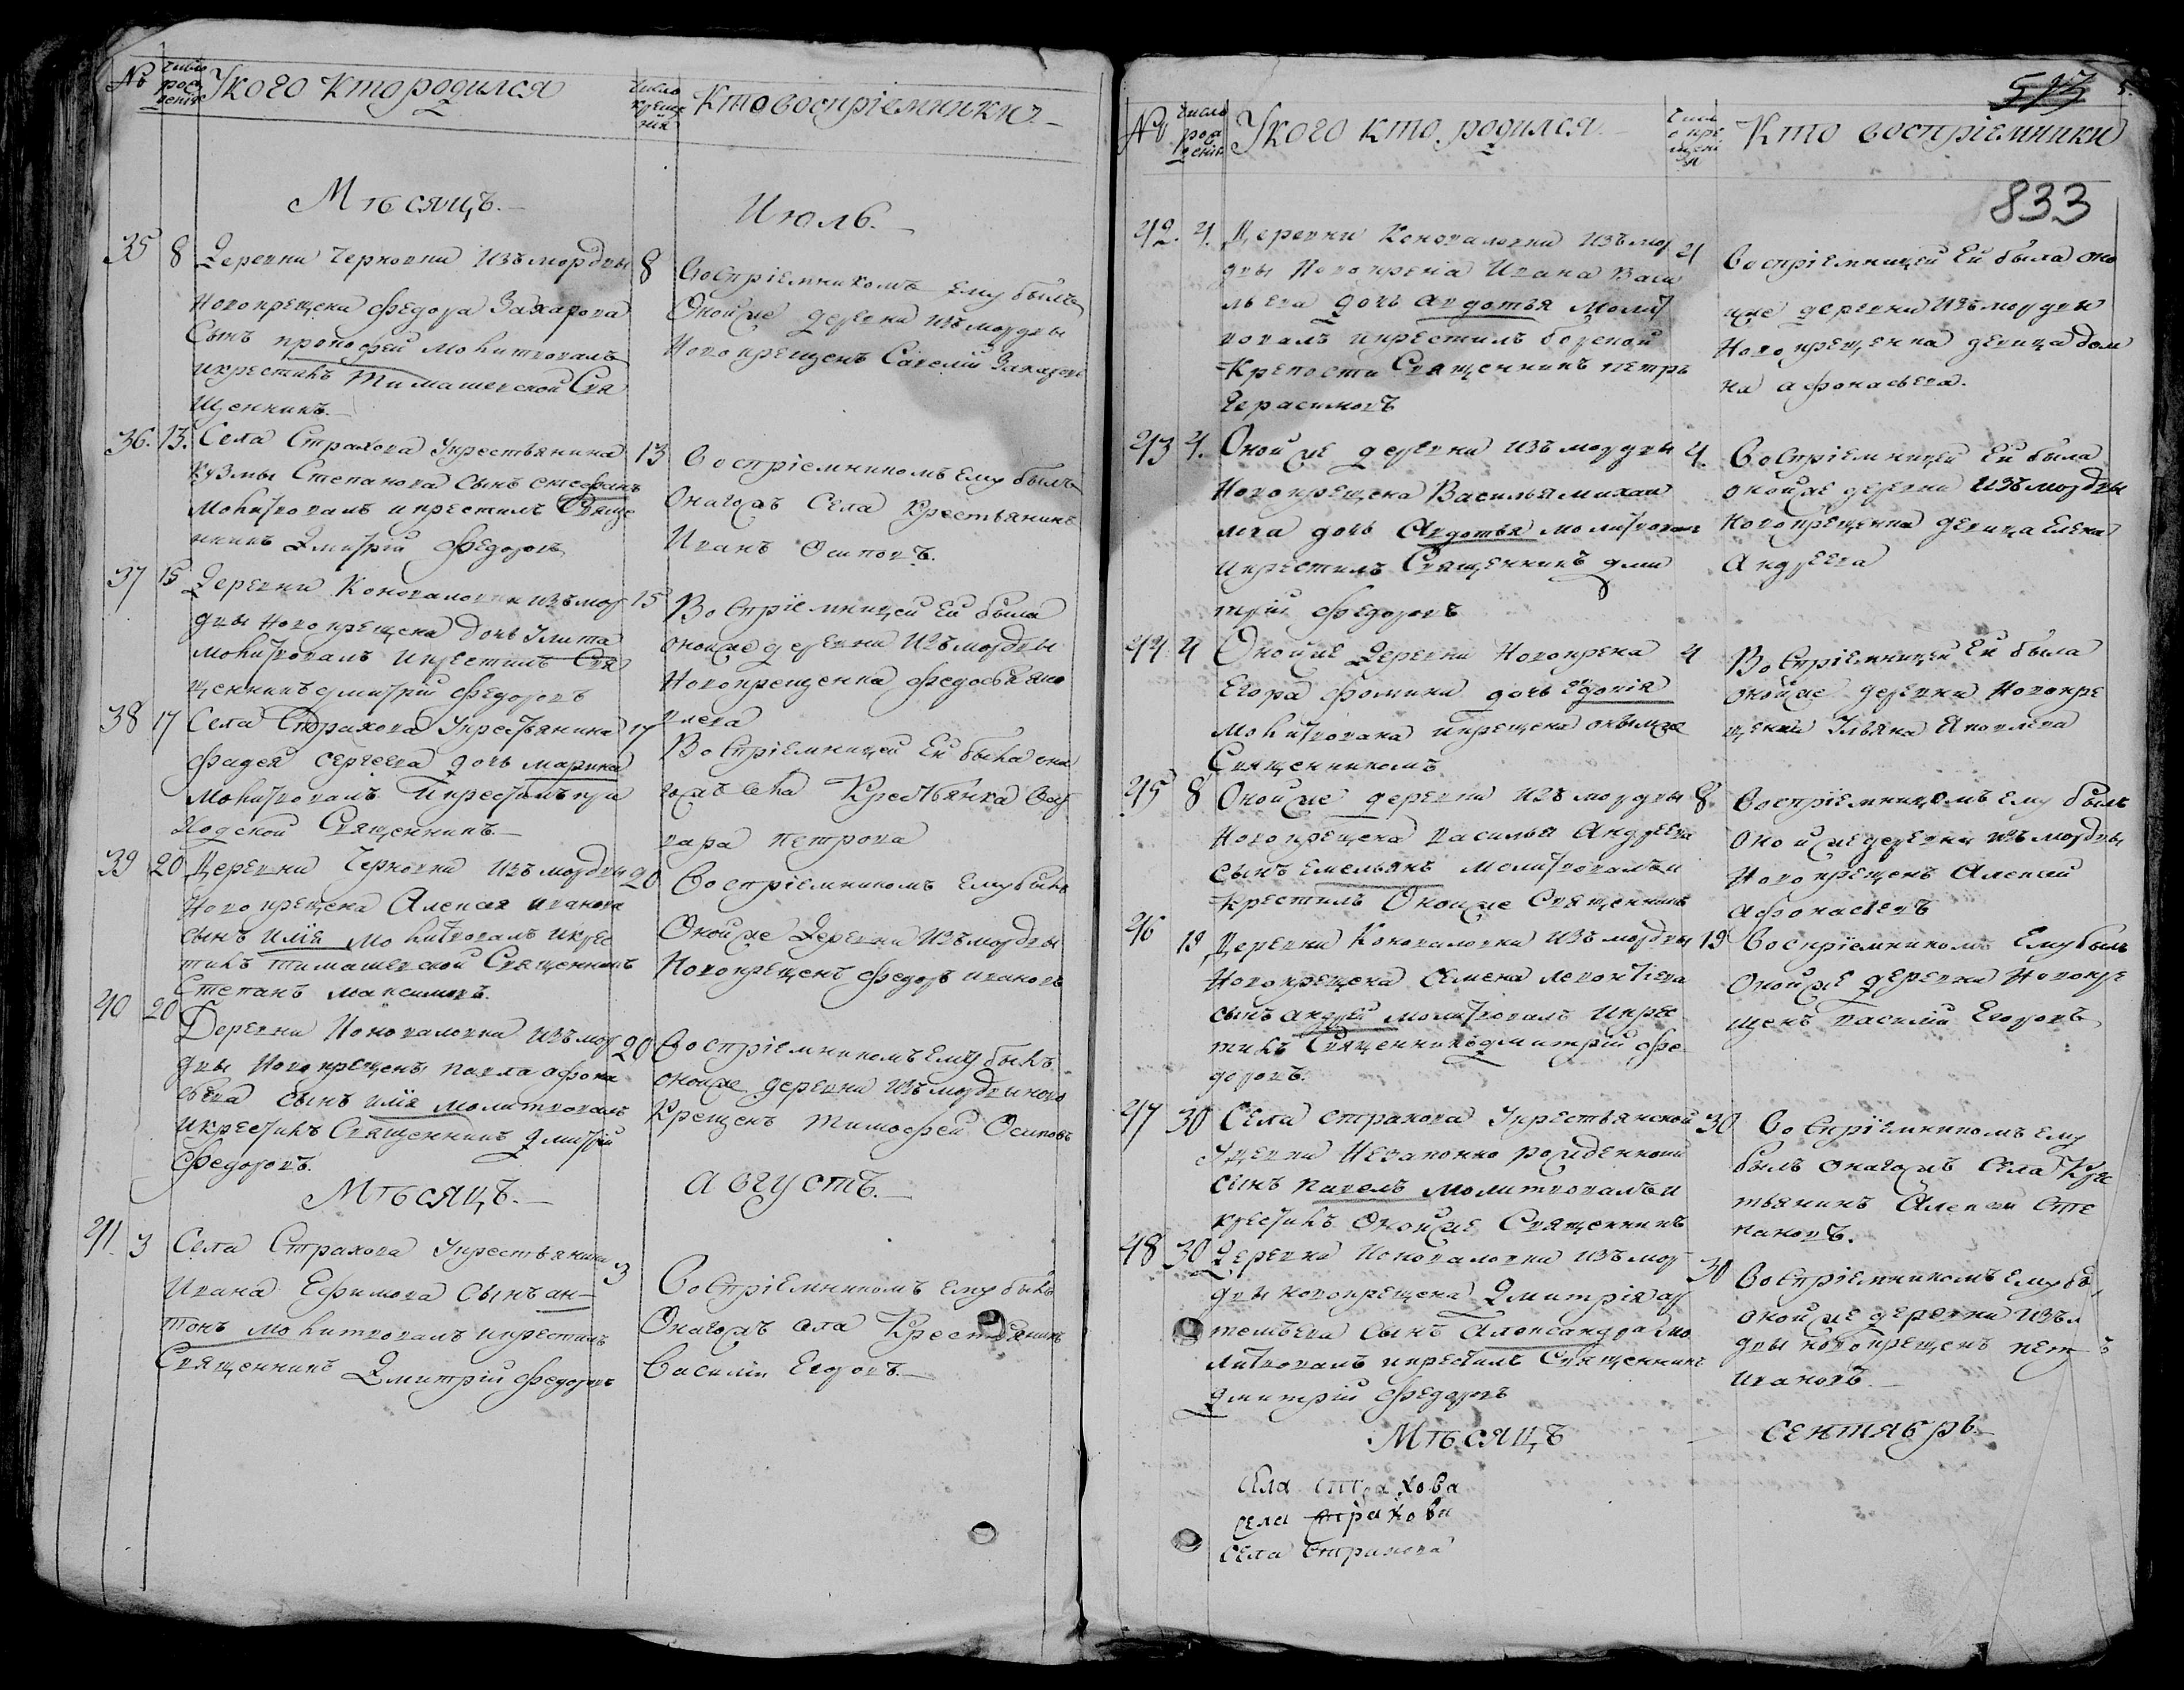 № число рождения У кого кто родился число крещения Кто восприемники
Мѣсяцъ Июль
35 8 Деревни Черновки изъ мордвы 8
Новокрещена Федора Захарова
Сынъ прокофей молитвовалъ
икрестилъ Тимашевской Свя
щенникъ
Восприемникомъ Ему былъ
Оной же деревни изъ мордвы
Новокрещенъ Савелий Захаровъ
36. 13. Села Страхова укрестьянина 13
кузмы Степанова сынъ стефанъ
молитвовалъ икрестилъ Свяще
нникъ Дмитрий Федоровъ
Восприемникомъ Ему былъ
Онагожъ Села Крестьянинъ
Иванъ Осиповъ.
37 15 Деревни Коноваловки изъ мор 15
двы новокрещена дочь Улита
молитвовалъ икрестилъ Свя
щенникъ дмитрий Федоровъ
Восприемницей Ей была
оной же деревни изъ мордвы
Новокрещенка федосья яко
влева
38 17 Села Страхова укрестьянина 17
фадея сергеева дочь марина
молитвовалъ икрестилъ
Священникъ
Восприемницей Ей была она
гожъ села Крестьянка Вар
вара петрова
39 20 Деревни Черновки изъ мордвы 20
Новокрещена Алексея иванова
сынъ илiя молитвовалъ икрес
тилъ тимашевской Священникъ
Степанъ максимовъ.
Восприемникомъ Ему былъ
Оной же Деревни изъ мордвы
Новокрещенъ федоръ ивановъ
40 20 Деревни Коноваловки изъ мор 20
двы Новокрещенъ павла афона
сьева сынъ илiя молитвовалъ
икрестилъ Священникъ Дмитрий
Федоровъ.
Восприемникомъ Ему былъ
оной же деревни изъ мордвы ново
Крещенъ Тимофей Осиповъ
Мѣсяцъ августъ.
41 3 Села Страхова укрестьянина 3
Ивана Ефимова сынъ ан-
тонъ молитвовалъ икрестилъ
Священникъ Дмитрий федоровъ
Восприемникомъ Ему былъ
Онагожъ села Крестьянинъ
Василий Егоровъ.
№ число рождения У кого кто родился Число крещения Кто восприемники
833
42. 4. Деревни Коноваловки изъ мор 4
двы Новокрена Ивана Васи
льева дочь авдотья молит
вовалъ икрестилъ борской
Крепости Священникъ петръ
Герасимовъ
Восприемницей Ей была оно
й же деревни изъ мордвы
Новокрещенка девица дом
на афонасьева.
43 4. Оной же деревни изъ мордвы 4.
Новокрещена Василья михаи
лова дочь Авдотья молитвовалъ
икрестилъ Священникъ дми
трий федоровъ
Восприемницей Ей была
оной же деревни изъ мордвы
новокрещенка девица Елена
Андреева
44 4 Оной же Деревни Новокрена 4
Егора фомина дочь
молитвована икрещена онымже
Священникомъ
Восприемницей Ей была
оной же деревни новокре
щенка Ульяна Яковлева
45 8 Оной же деревни изъ мордвы 8.
Новокрещена василья Андреева
сынъ емельянъ молитвовалъ и
крестилъ Оной же Священникъ
Восприемникомъ ему былъ
Оной же деревни изъ мордвы
Новокрещенъ Алексей
афонасьевъ
46 19 Деревни Коноваловки изъ мордвы 19
Новокрещена Семена леонтiева
сынъ андрей молитвовалъ икрес
тилъ Священникъ дмитрий фе
доровъ.
Восприемникомъ Ему былъ
Оной же деревни Новокре
щенъ василий Егоровъ
47 30 Села страхова укрестьянской 30
незаконно рожденной
сынъ павелъ молитвовалъ и
крестилъ Оной же Священникъ
Восприемникомъ ему
былъ онагожъ села Крес
тьянинъ Алексей Сте
пановъ.
48 30 Деревни Коноваловки изъ мор 30
двы новокрещена Дмитрiя ар
темьева сынъ Александра мо
литвовалъ икрестилъ Священникъ
Дмитрий федоровъ
Восприемникомъ ему бы
оной же деревни изъ м
двы новокрещенъ пет ъ
Ивановъ.
Мѣсяцъ сентябрь.
села страхова
села страхова
села Страхова